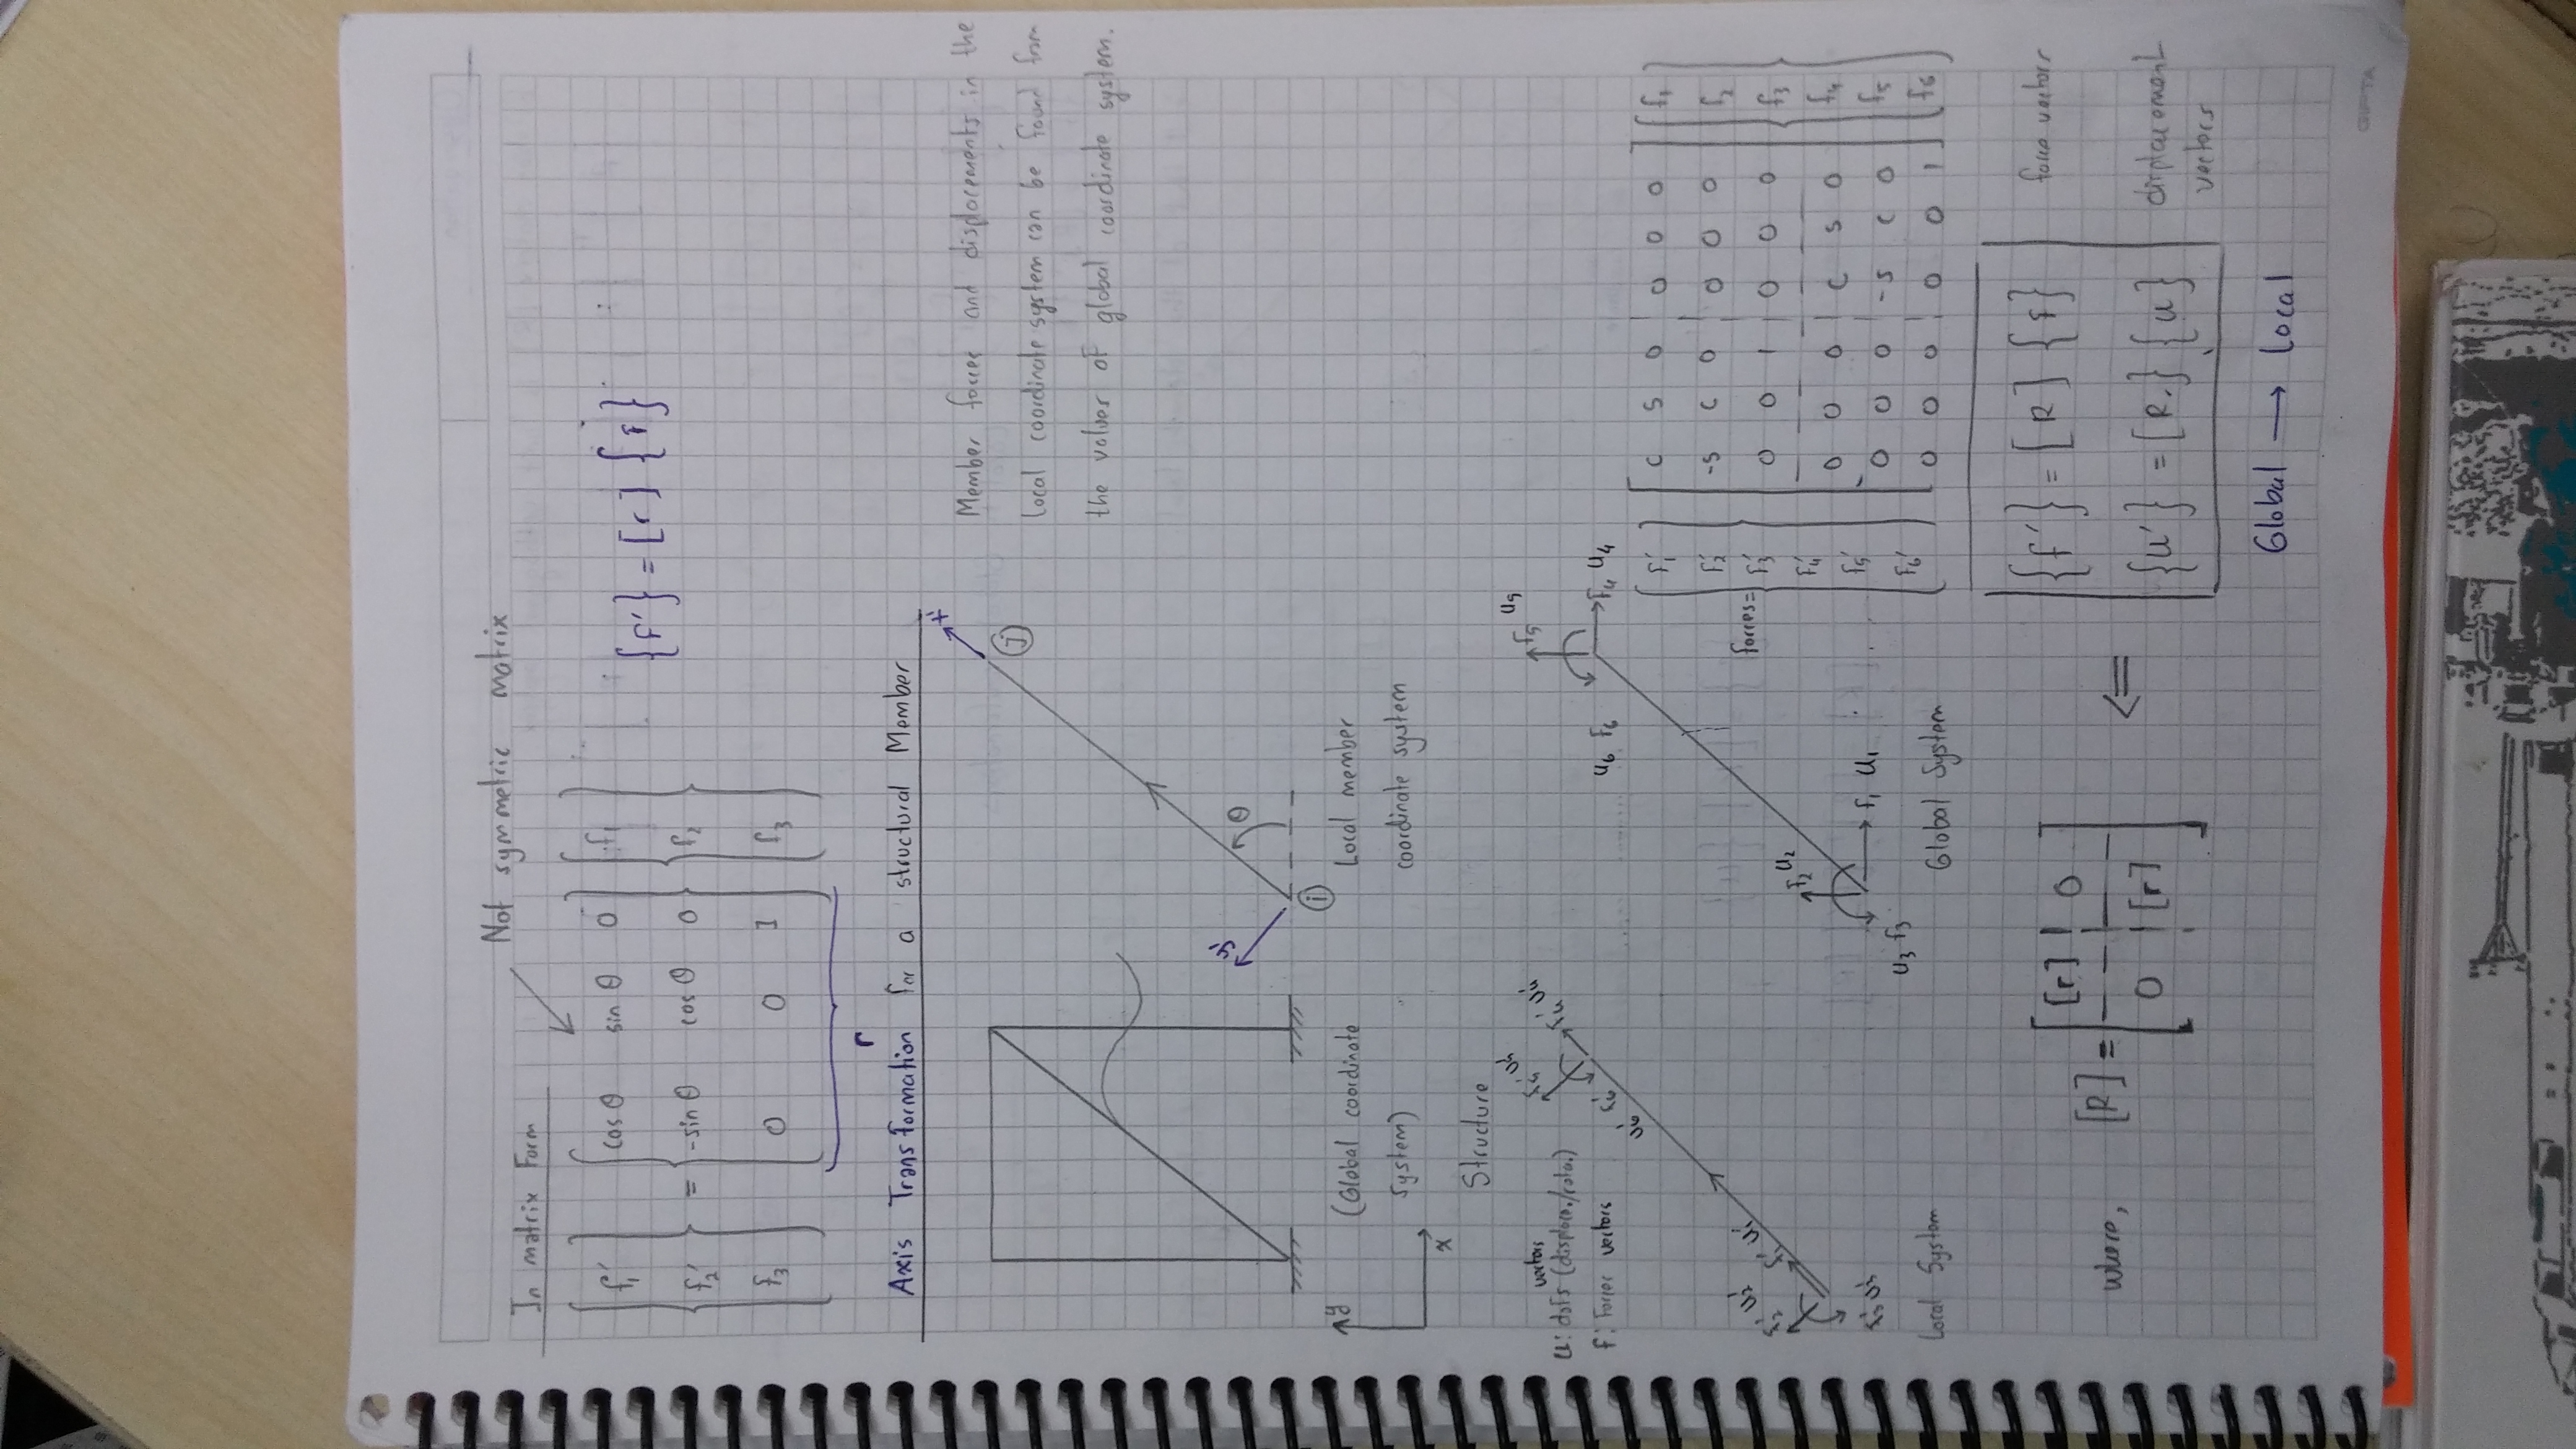 Not symmetric matrix
In matrix Form
f₁' cosθ sinθ 0 f₁
{f'} = [r] {f}
f₂' = -sinθ cosθ 0 f₂
f₃ 0 0 1 f₃
r
Axis Transformation for a structural Member
x'
j
Member forces and displacements in the
local coordinate system can be found from
the values of global coordinate system.
y'
θ
i
y
x
(Global coordinate
system)
Local member
coordinate system
Structure
vectors
u: dofs (displace./rota.)
f: Forces vectors
f₅' u₅'
f₄' u₄'
u₆' f₆'
f₂' u₂'
f₁' u₁'
f₃' u₃'
Local System
f₅ u₅
u₆ f₆
f₄ u₄
f₂ u₂
f₁ u₁
u₃ f₃
Global System
forces=
f₁' c s 0 0 0 0 f₁
f₂' -s c 0 0 0 0 f₂
f₃' 0 0 1 0 0 0 f₃
f₄' 0 0 0 c s 0 f₄
f₅' 0 0 0 -s c 0 f₅
f₆' 0 0 0 0 0 1 f₆
where, [R] = [r] 0
0 [r]
⇐
{f'} = [R] {f} force vectors
{u'} = [R.} {u} displacement
vectors
Global → local
GIPTA